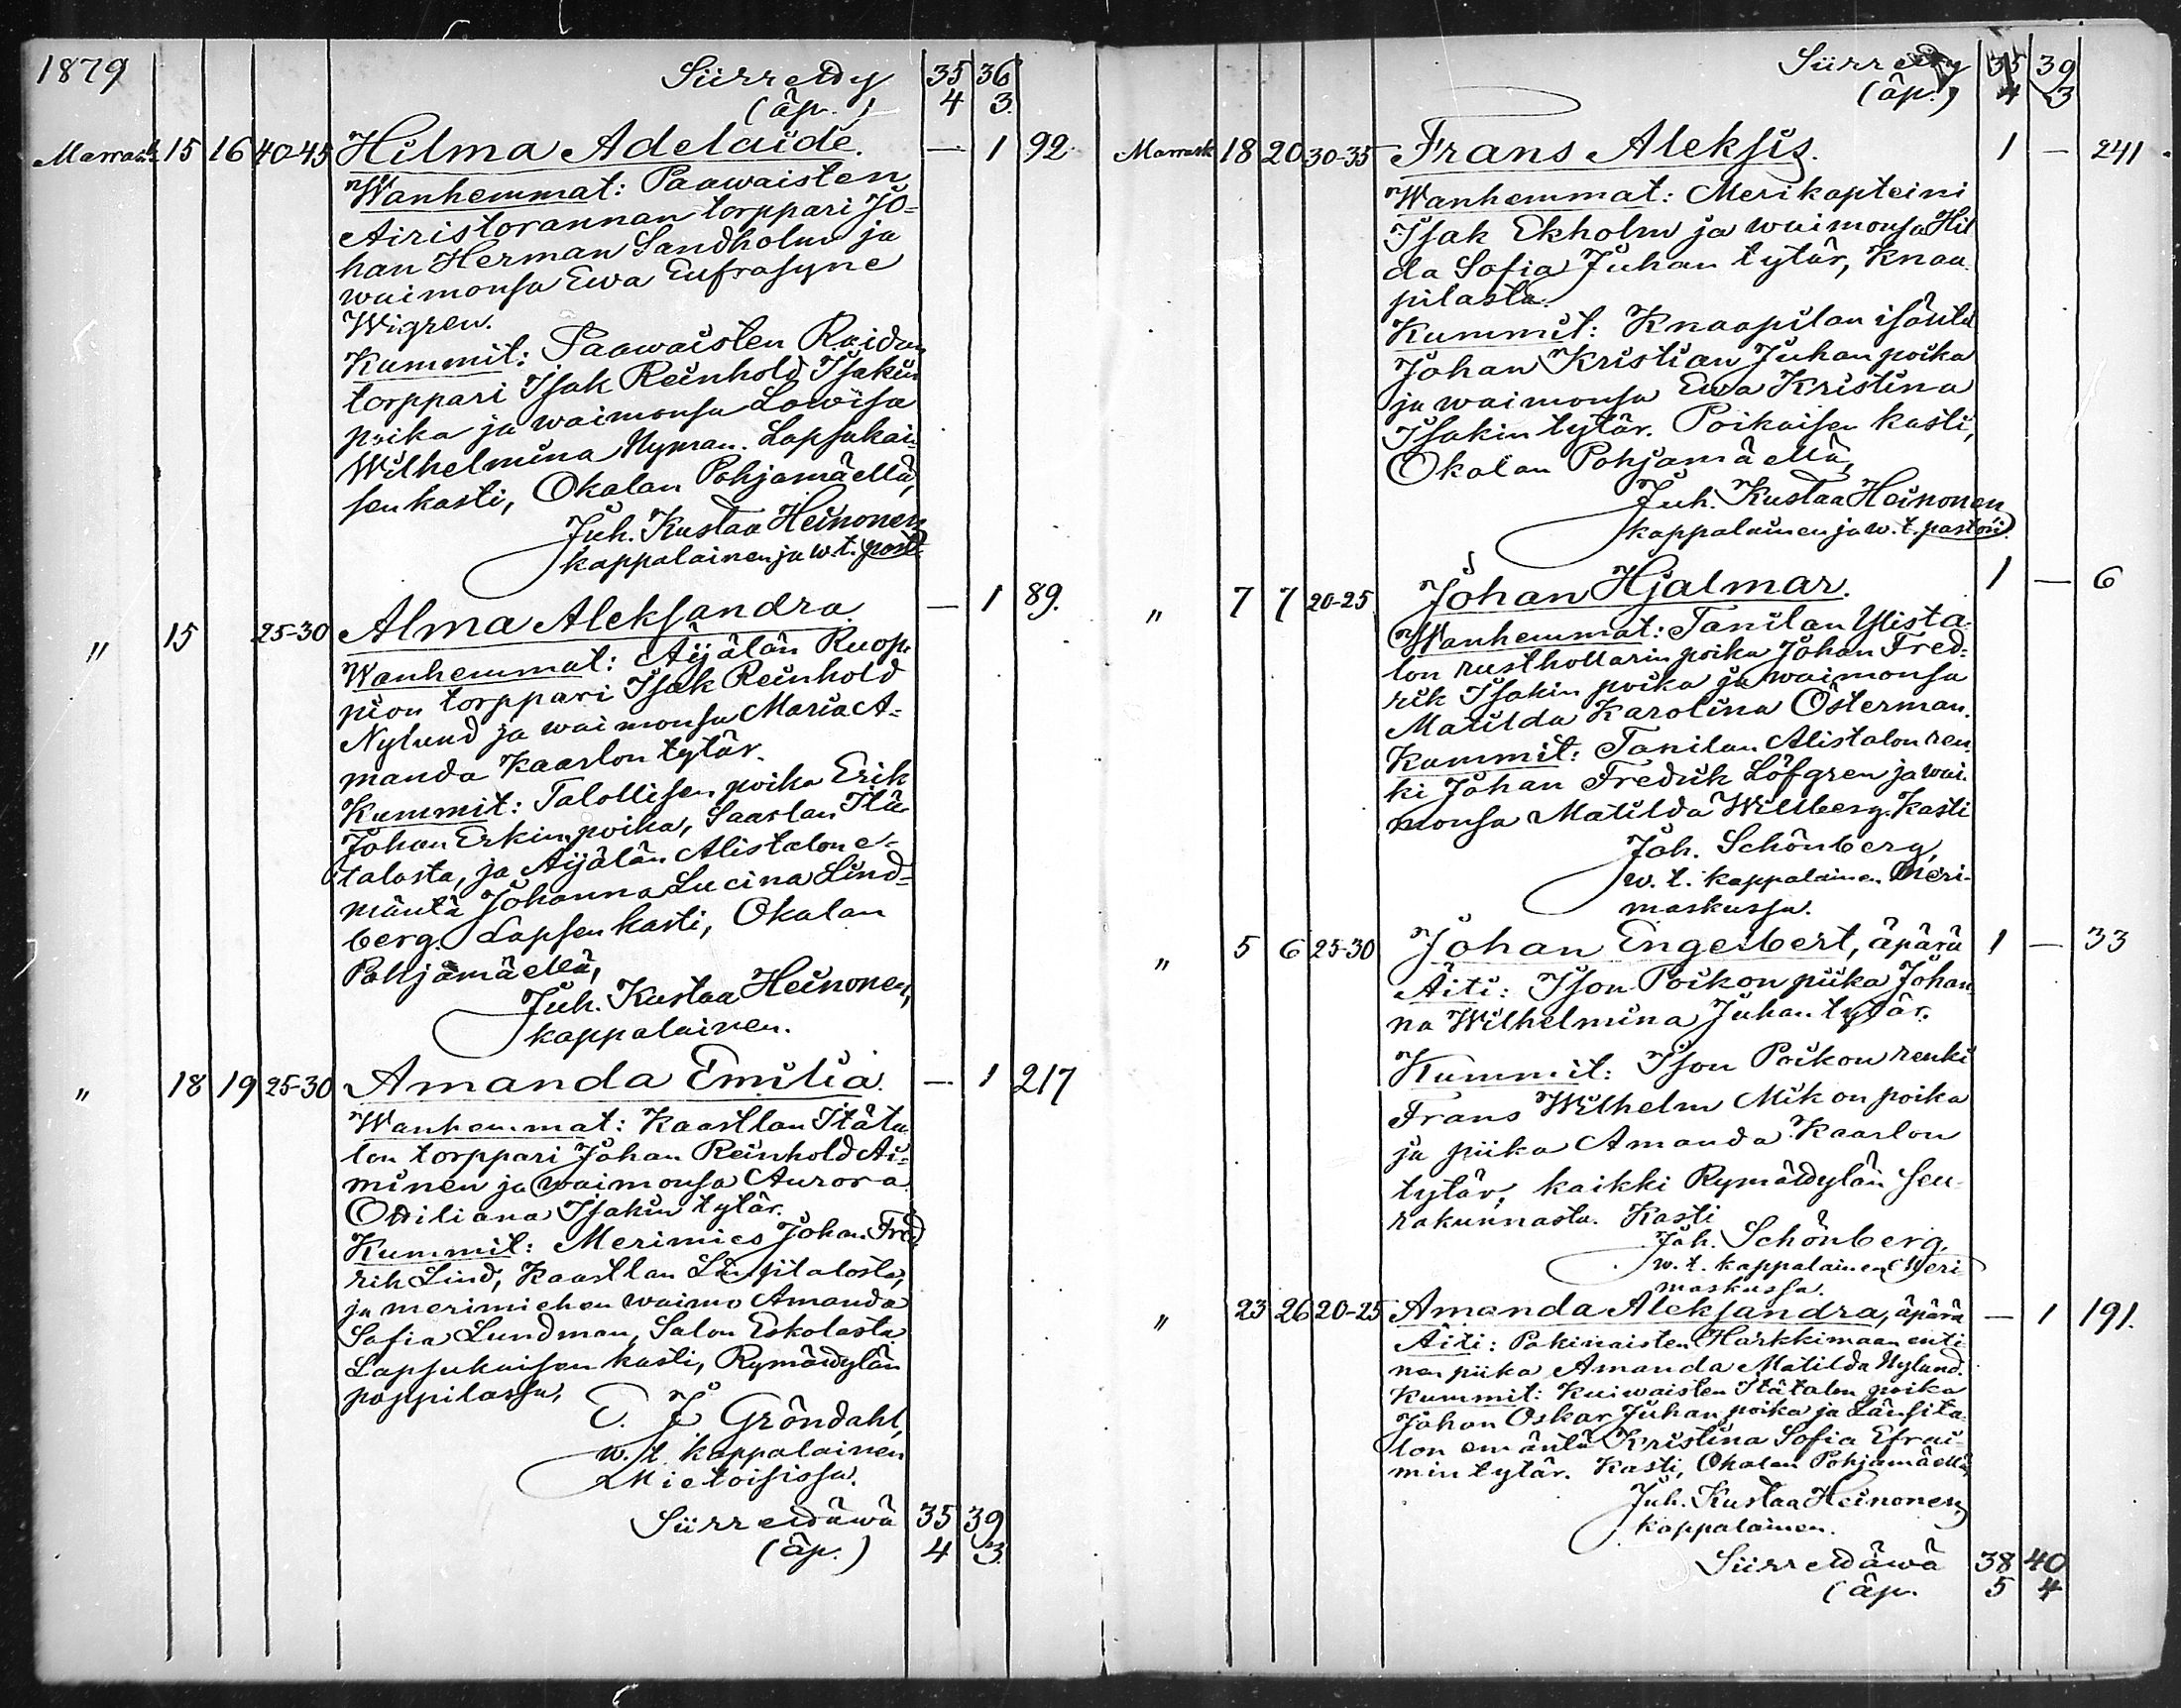 1879 Siirretty 35 36
(äp.) 4 3.
Marrask. 15 16 40-45 Hilma Adelaide. — 1 92
Wanhemmat: Paawaisten
Airistorannan torppari Jo=
han Herman Sandholm ja
waimonsa Ewa Eufrosyne
Wigren.
Kummit: Paawaisten Raidan
torppari Isak Reinhold Isakin
poika ja waimonsa Lowisa
Wilhelmina Nyman. Lapsukai=
sen kasti, Okalan Pohjamäellä,
Juh. Kustaa Heinonen
kappalainen ja w.t. past.
" 15 25-30 Alma Aleksandra. — 1 89.
Wanhemmat: Äijälän Ruop=
pion torppari Isak Reinhold
Nylund ja waimonsa Maria A=
manda Kaarlon tytär.
Kummit: Talollisen poika Erik
Johan Erkin poika, Saarlan Itä=
talosta, ja Äijälän Alistalon e=
mäntä Johanna Lucina Lind=
berg. Lapsen kasti, Okalan
Pohjamäellä,
Juh. Kustaa Heinonen,
kappalainen.
" 18 19 25-30 Amanda Emilia. — 1 217
Wanhemmat: Kaastlan Itäta=
lon torppari Johan Reinhold Ai=
minen ja waimonsa Aurora
Ottiliana Isakin tytär.
Kummit: Merimies Johan Fred
rik Lind, Kaastlan Länsitalosta,
ja merimiehen waimo Amanda
Sofia Lundman, Salon Eskolasta.
Lapsukaisen kasti, Rymättylän
pappilassa,
E. J. Gröndahl,
w.t. kappalainen
Mietoisissa.
Siirrettäwä 35 39
(äp.) 4 3.
Siirretty 35 39
(äp.) 4 3
Marrask 18 20 30-35 Frans Aleksis. 1 — 241.
Wanhemmat: Merikapteini
Isak Ekholm ja waimonsa Hil
da Sofia Juhan tytär, Knaa
pilasta.
Kummit: Knaapilan isäntä
Johan Kristian Juhan poika
ja waimonsa Ewa Kristina
Isakin tytär. Poikaisen kasti,
Okalan Pohjamäellä,
Juh. Kustaa Heinonen
kappalainen ja w.t. pastori
" 7 7 20-25 Johan Hjalmar. 1 — 6
Wanhemmat: Tanilan Ylista=
lon rusthollarin poika Johan Fred=
rik Isakin poika ja waimonsa
Matilda Karolina Österman.
Kummit: Tanilan Alistalon ren
ki Johan Fredrik Löfgren ja wai
monsa Matilda Willberg. Kasti
Joh. Schönberg,
w.t. kappalainen Meri-
maskussa.
" 5 6 25-30 Johan Engelbert, äpärä 1 — 33
Äiti: Ison Poikon piika Johan
na Wilhelmina Juhan tytär.
Kummit: Ison Poikon renki
Frans Wilhelm Mikon poika
ja piika Amanda Kaarlon
tytär, kaikki Rymättylän seu-
rakunnasta. Kasti
Joh. Schönberg,
w.t. kappalainen Meri-
maskussa.
" 23 26 20-25 Amanda Aleksandra, äpärä — 1 191.
Äiti: Pakinaisten Harkkimaan enti
nen piika Amanda Matilda Nylund.
Kummit: Kuiwaisten Itätalon poika
Johan Oskar Juhan poika ja Länsita=
lon emäntä Kristina Sofia Efrai=
min tytär. Kasti, Okalan Pohjamäellä,
Juh. Kustaa Heinonen,
kappalainen.
Siirrettäwä 38 40
(äp. 5 4